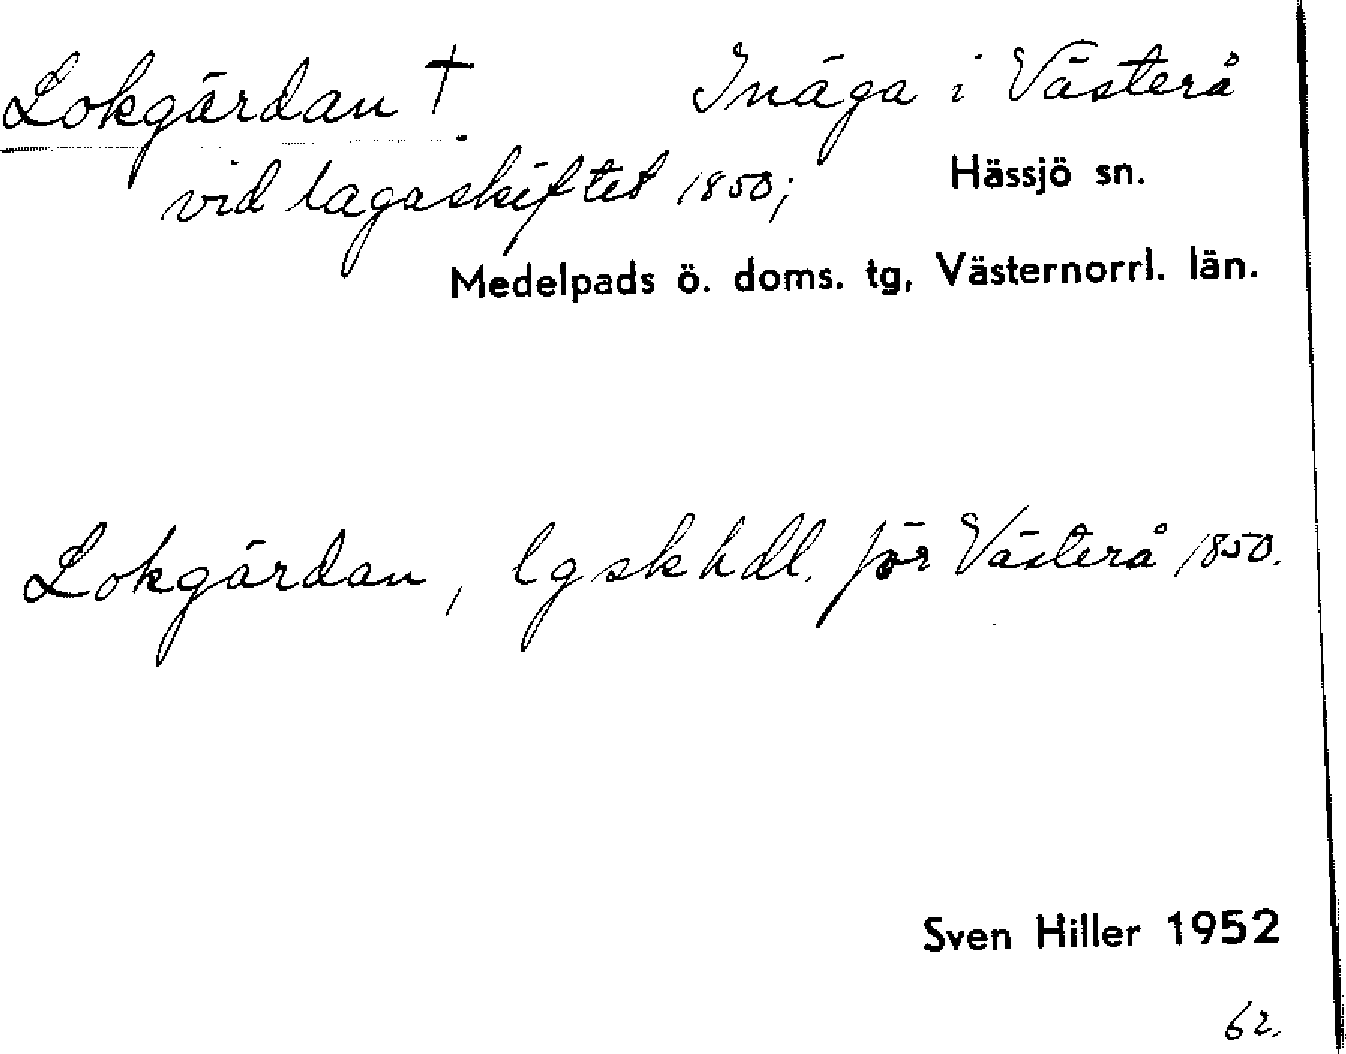 Lokgärdan † Inäga i Västerå
vid lagaskiftet 1850; Hässjö sn.
Medelpads ö. doms. tg, Västernorrl. län.
Lokgärdan, lgskhdl. för Västerå 1850.
Sven Hiller 1952
62.